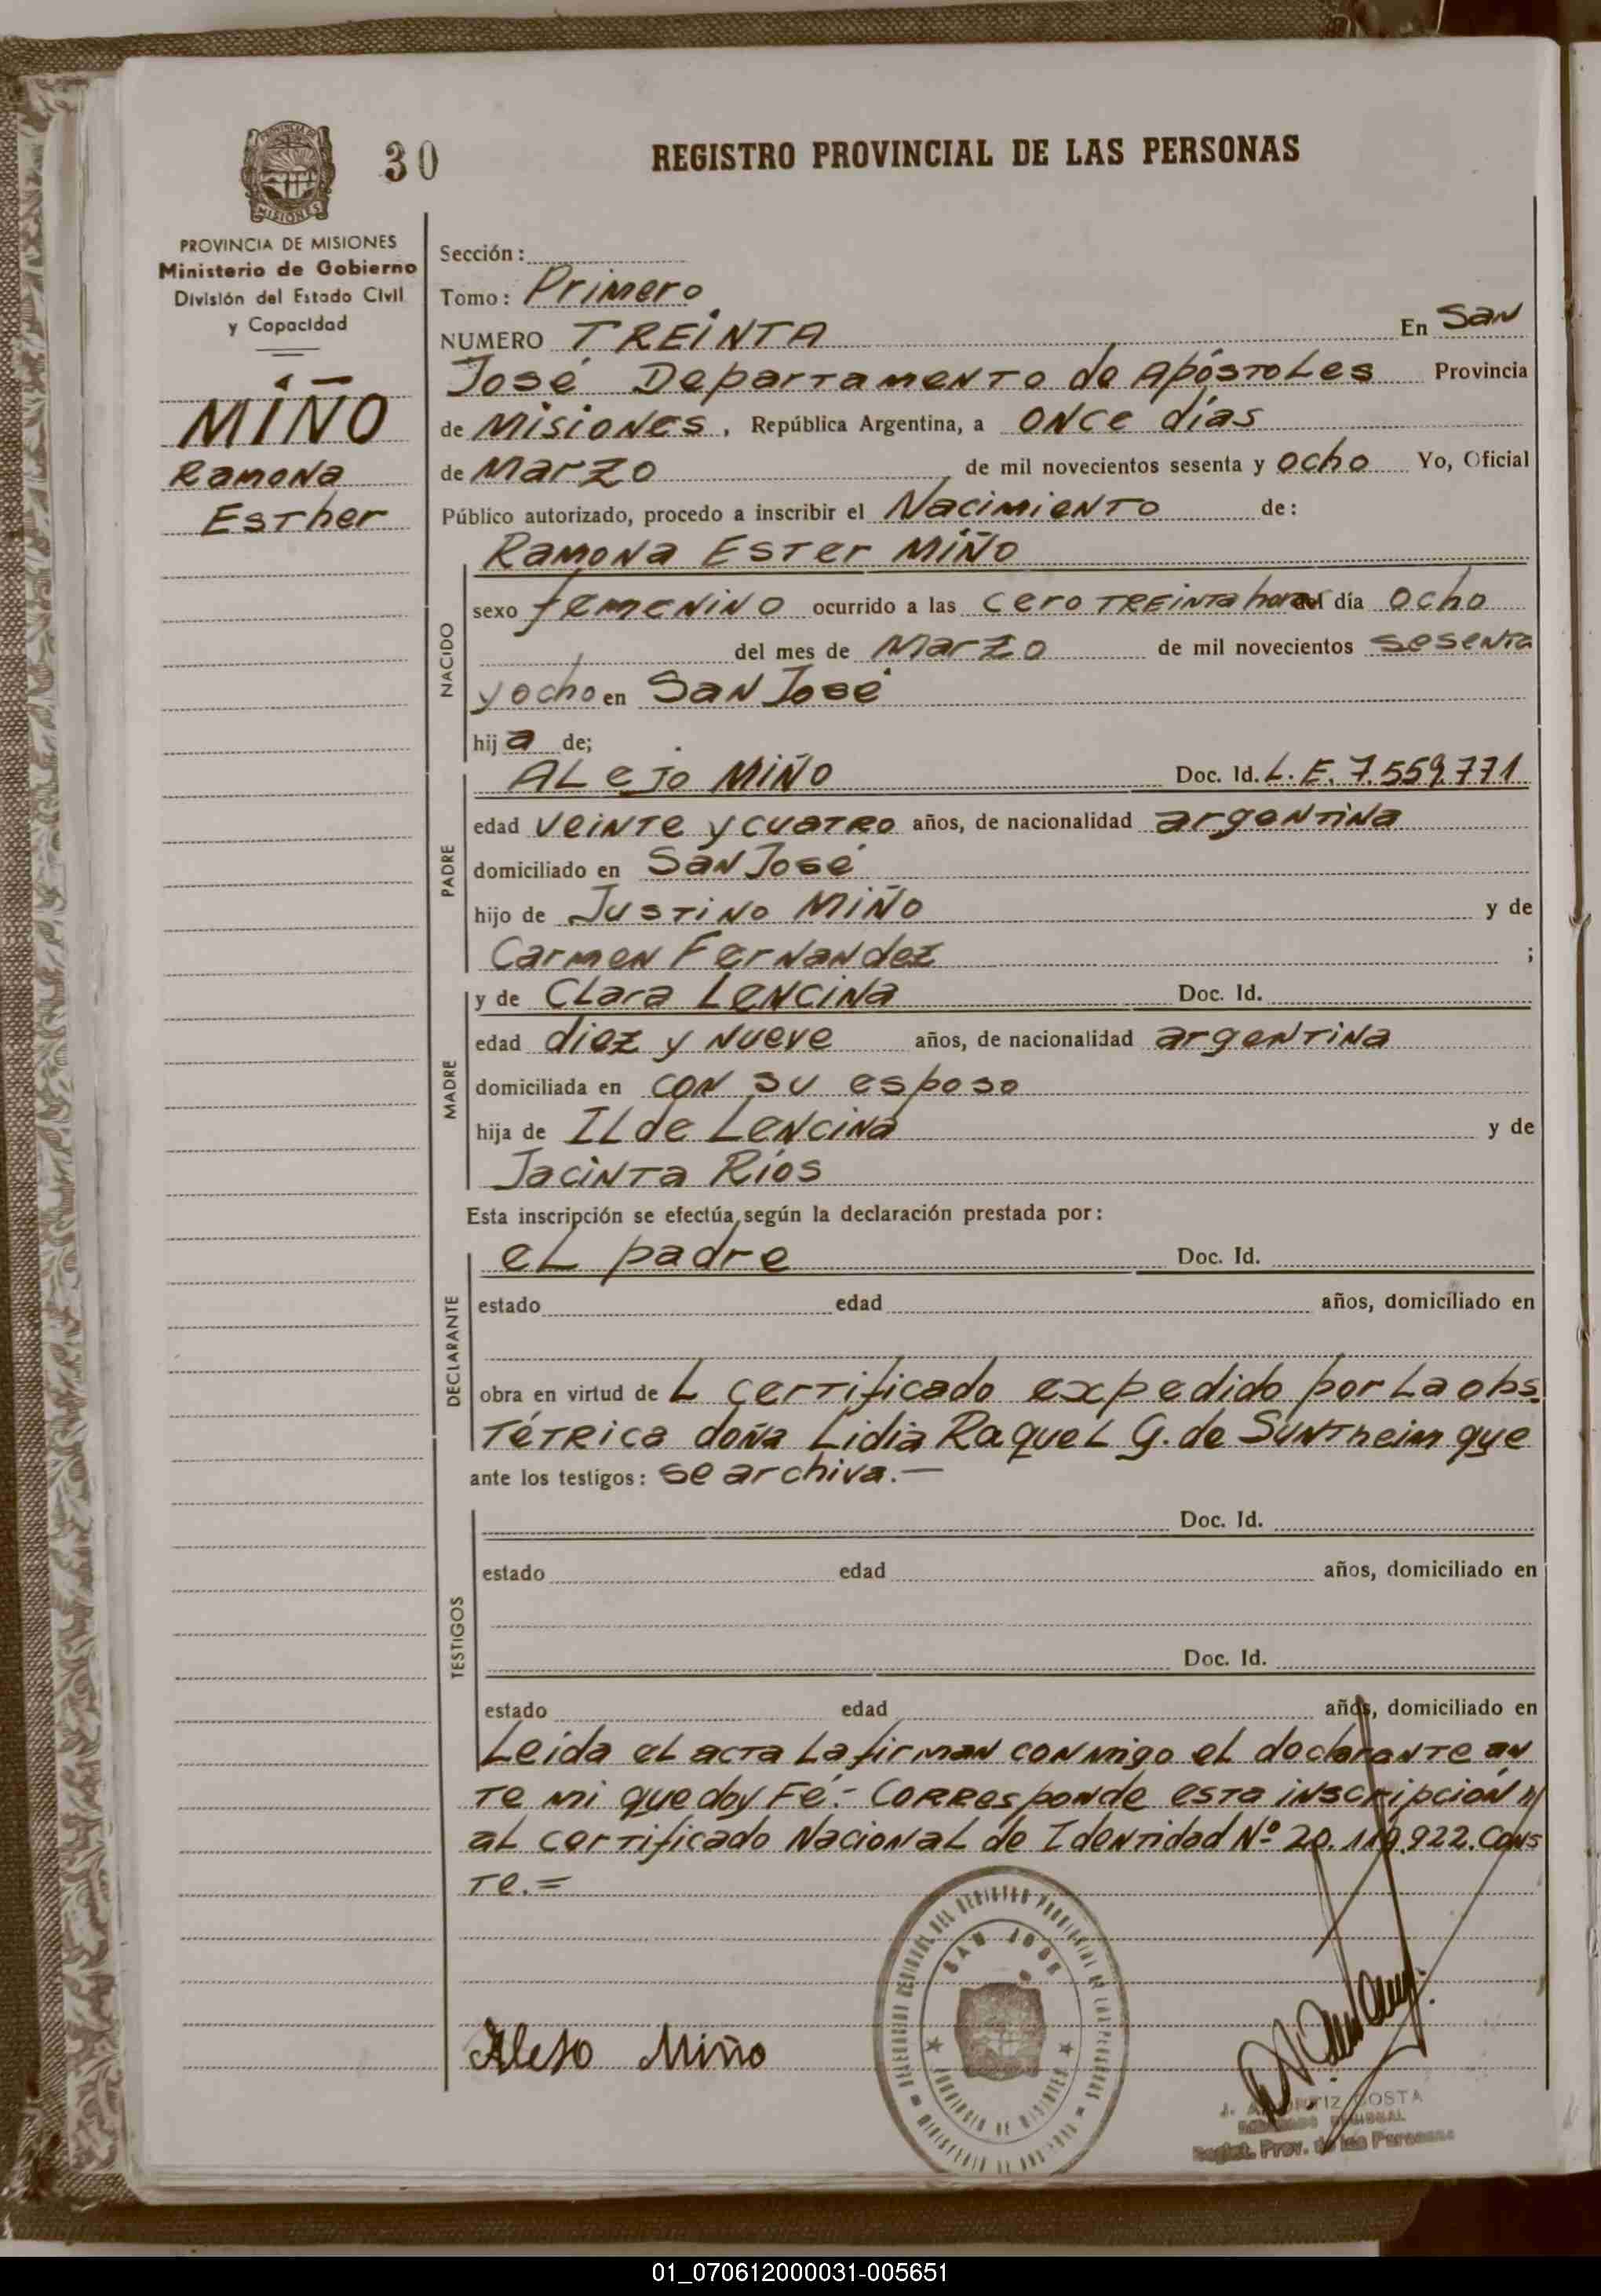 30
REGISTRO PROVINCIAL DE LAS PERSONAS
MISIONES
PROVINCIA DE MISIONES
Ministerio de Gobierno
División del Estado Civil
y Capacidad
MIÑO
Ramona
Esther
Sección:
Tomo: Primero
NUMERO TREINTA En San
José Departamento de Apóstoles Provincia
de Misiones, República Argentina, a once días
de Marzo de mil novecientos sesenta y ocho Yo, Oficial
Público autorizado, procedo a inscribir el Nacimiento de:
Ramona Ester Miño
NACIDO
sexo femenino ocurrido a las cero treinta horas del día ocho
del mes de Marzo de mil novecientos sesenta
y ocho en San José
hij a de;
PADRE
Alejo Miño Doc. Id. L. E. 7.559.771
edad veinte y cuatro años, de nacionalidad argentina
domiciliado en San José
hijo de Justino Miño y de
Carmen Fernandez ;
MADRE
y de Clara Lencina Doc. Id.
edad diez y nueve años, de nacionalidad argentina
domiciliada en con su esposo
hija de Ilde Lencina y de
Jacinta Ríos
Esta inscripción se efectúa, según la declaración prestada por:
DECLARANTE
el padre Doc. Id.
estado edad años, domiciliado en
obra en virtud de L certificado expedido por la obs
tétrica doña Lidia Raquel G. de Suntheim que
ante los testigos: se archiva.—
TESTIGOS
Doc. Id.
estado edad años, domiciliado en
Doc. Id.
estado edad años, domiciliado en
Leida el acta la firman conmigo el declarante an
te mi que doy Fé.- Corresponde esta inscripción
al certificado Nacional de Identidad Nº 20.119.922. Cons
te.=
SAN JOSE
Alejo Miño
J. A. ORTIZ COSTA
DELEGADO REGIONAL
Regist. Prov. de las Personas
01_070612000031-005651